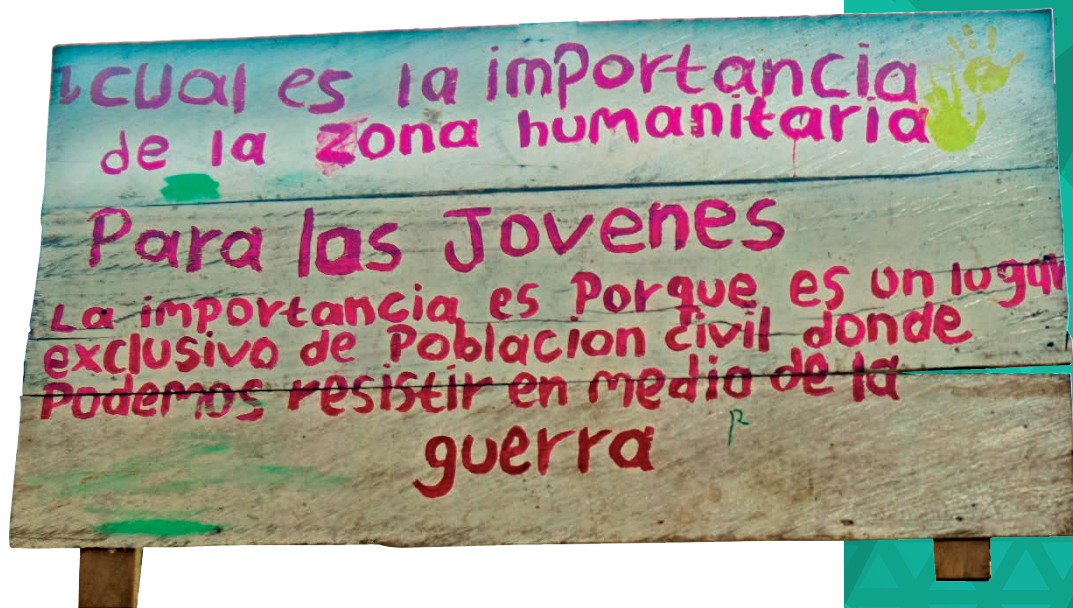 ¿cual es la imPortancia
de la zona humanitaria
Para las Jovenes
La importancia es Porque es un lugar
exclusivo de Poblacion civil donde
Podemos resistir en medio de la
guerra